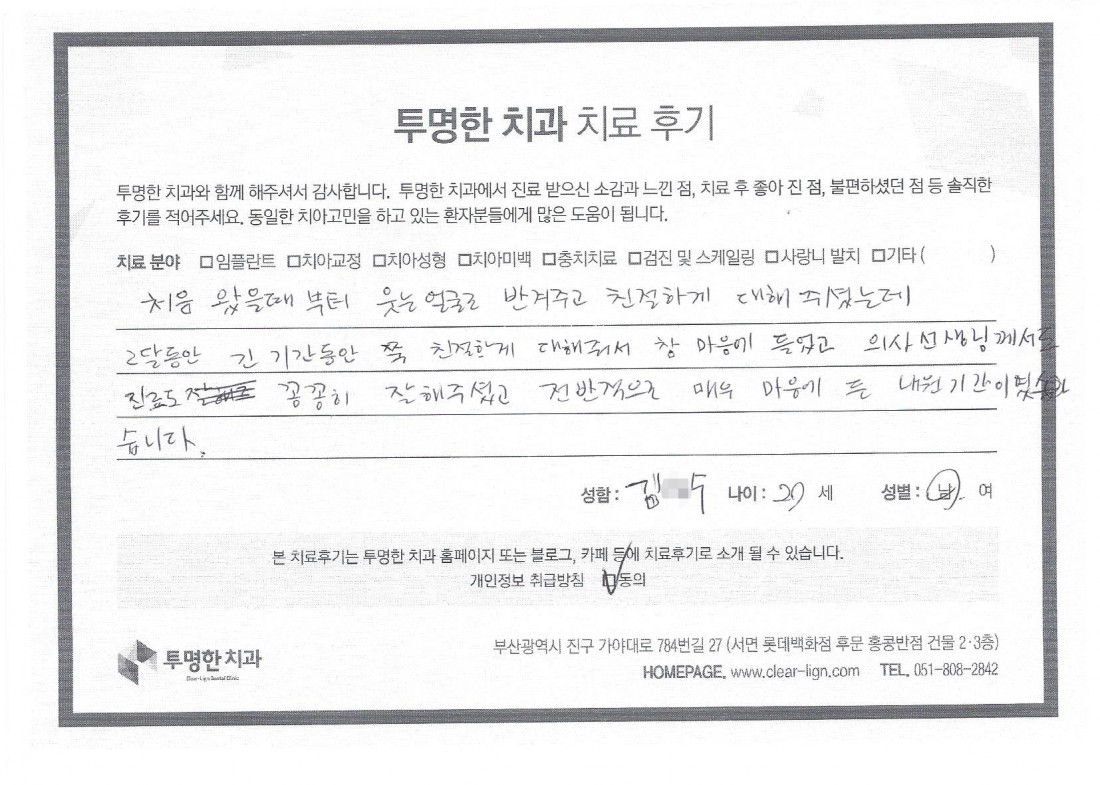 투명한 치과 치료 후기
투명한 치과와 함께 해주셔서 감사합니다. 투명한 치과에서 진료 받으신 소감과 느낀 점, 치료 후 좋아 진 점, 불편하셨던 점 등 솔직한
후기를 적어주세요. 동일한 치아고민을 하고 있는 환자분들에게 많은 도움이 됩니다.
치료 분야 □임플란트 □치아교정 □치아성형 □치아미백 □충치치료 □검진 및 스케일링 □사랑니 발치 □기타 ( )
처음 왔을때 부터 웃는 얼굴로 반겨주고 친절하게 대해 주셨는데
2달동안 긴 기간동안 쭉 친절하게 대해줘서 참 마음에 들었고 의사선생님께서도
진료도 꼼꼼히 잘해주셨고 전반적으로 매우 마음에 든 내원기간이였
습니다.
성함 : 김 수 나이 : 20 세 성별 : 남 여
본 치료후기는 투명한 치과 홈페이지 또는 블로그, 카페 등에 치료후기로 소개 될 수 있습니다.
개인정보 취급방침 □동의
투명한 치과
Clear-Lign Dental Clinic
부산광역시 진구 가야대로 784번길 27 (서면 롯데백화점 후문 홍콩반점 건물 2·3층)
HOMEPAGE. www.clear-lign.com TEL. 051-808-2842